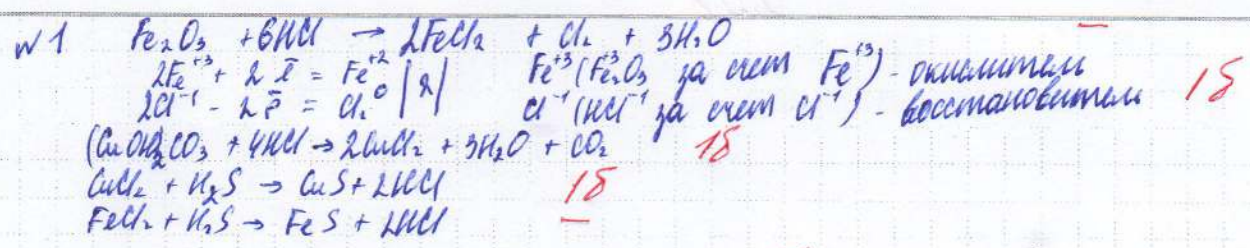 №1 Fe₂O₃ + 6HCl → 2FeCl₂ + Cl₂ + 3H₂O —
2Fe⁺³ + 2ē = Fe⁺² | 2 | Fe⁺³ (Fe₂⁺³O₃ за счет Fe⁺³) - окислитель
2Cl⁻¹ - 2ē = Cl₂⁰ | | Cl⁻¹ (HCl⁻¹ за счет Cl⁻¹) - восстановитель 1б
(CuOH)₂CO₃ + 4HCl → 2CuCl₂ + 3H₂O + CO₂ 1б
CuCl₂ + H₂S → CuS + 2HCl 1б
FeCl₂ + H₂S → FeS + 2HCl —